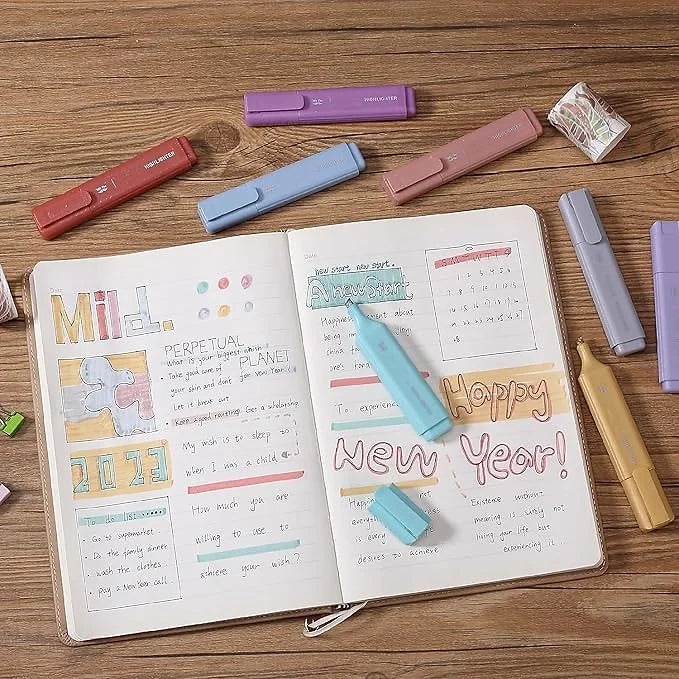 HIGHLIGHTER
HIGHLIGHTER
HIGHLIGHTER
HIGHLIGHTER
Date
Mild.
PERPETUAL
PLANET
What is your biggest which
• Take good care of
your skin and don't for new Year (
Let it break out
• Keep a good routine Get a scholarship
My wish is to sleep to
when I was a child
2023
How much you are
willing to use to
sincere your wish?
To do list
• Go to supermarket...
• Do the family dinner
• wash the clothes.
• pay a New Year call.
Date
new start new start.
A new Start
Happiness about
being in
china fo
one's
To experience
S M T T
1 2 3 4 5 6
7 8 9 10 11
Happy
New Year!
Happiness not
every
is every life
desires to achieve
Existence without
meaning is surely not
living your life but
experiencing it...